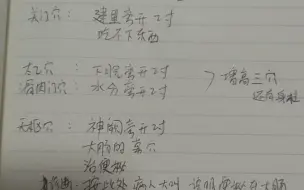 关门穴： 建里旁开2寸
吃不下东西
太乙穴： 下脘旁开2寸
滑肉门穴： 水分旁开2寸
增高三穴
还有
天枢穴： 神阙旁开2寸
大肠的募穴
治便秘
按此处 病人大叫 说明